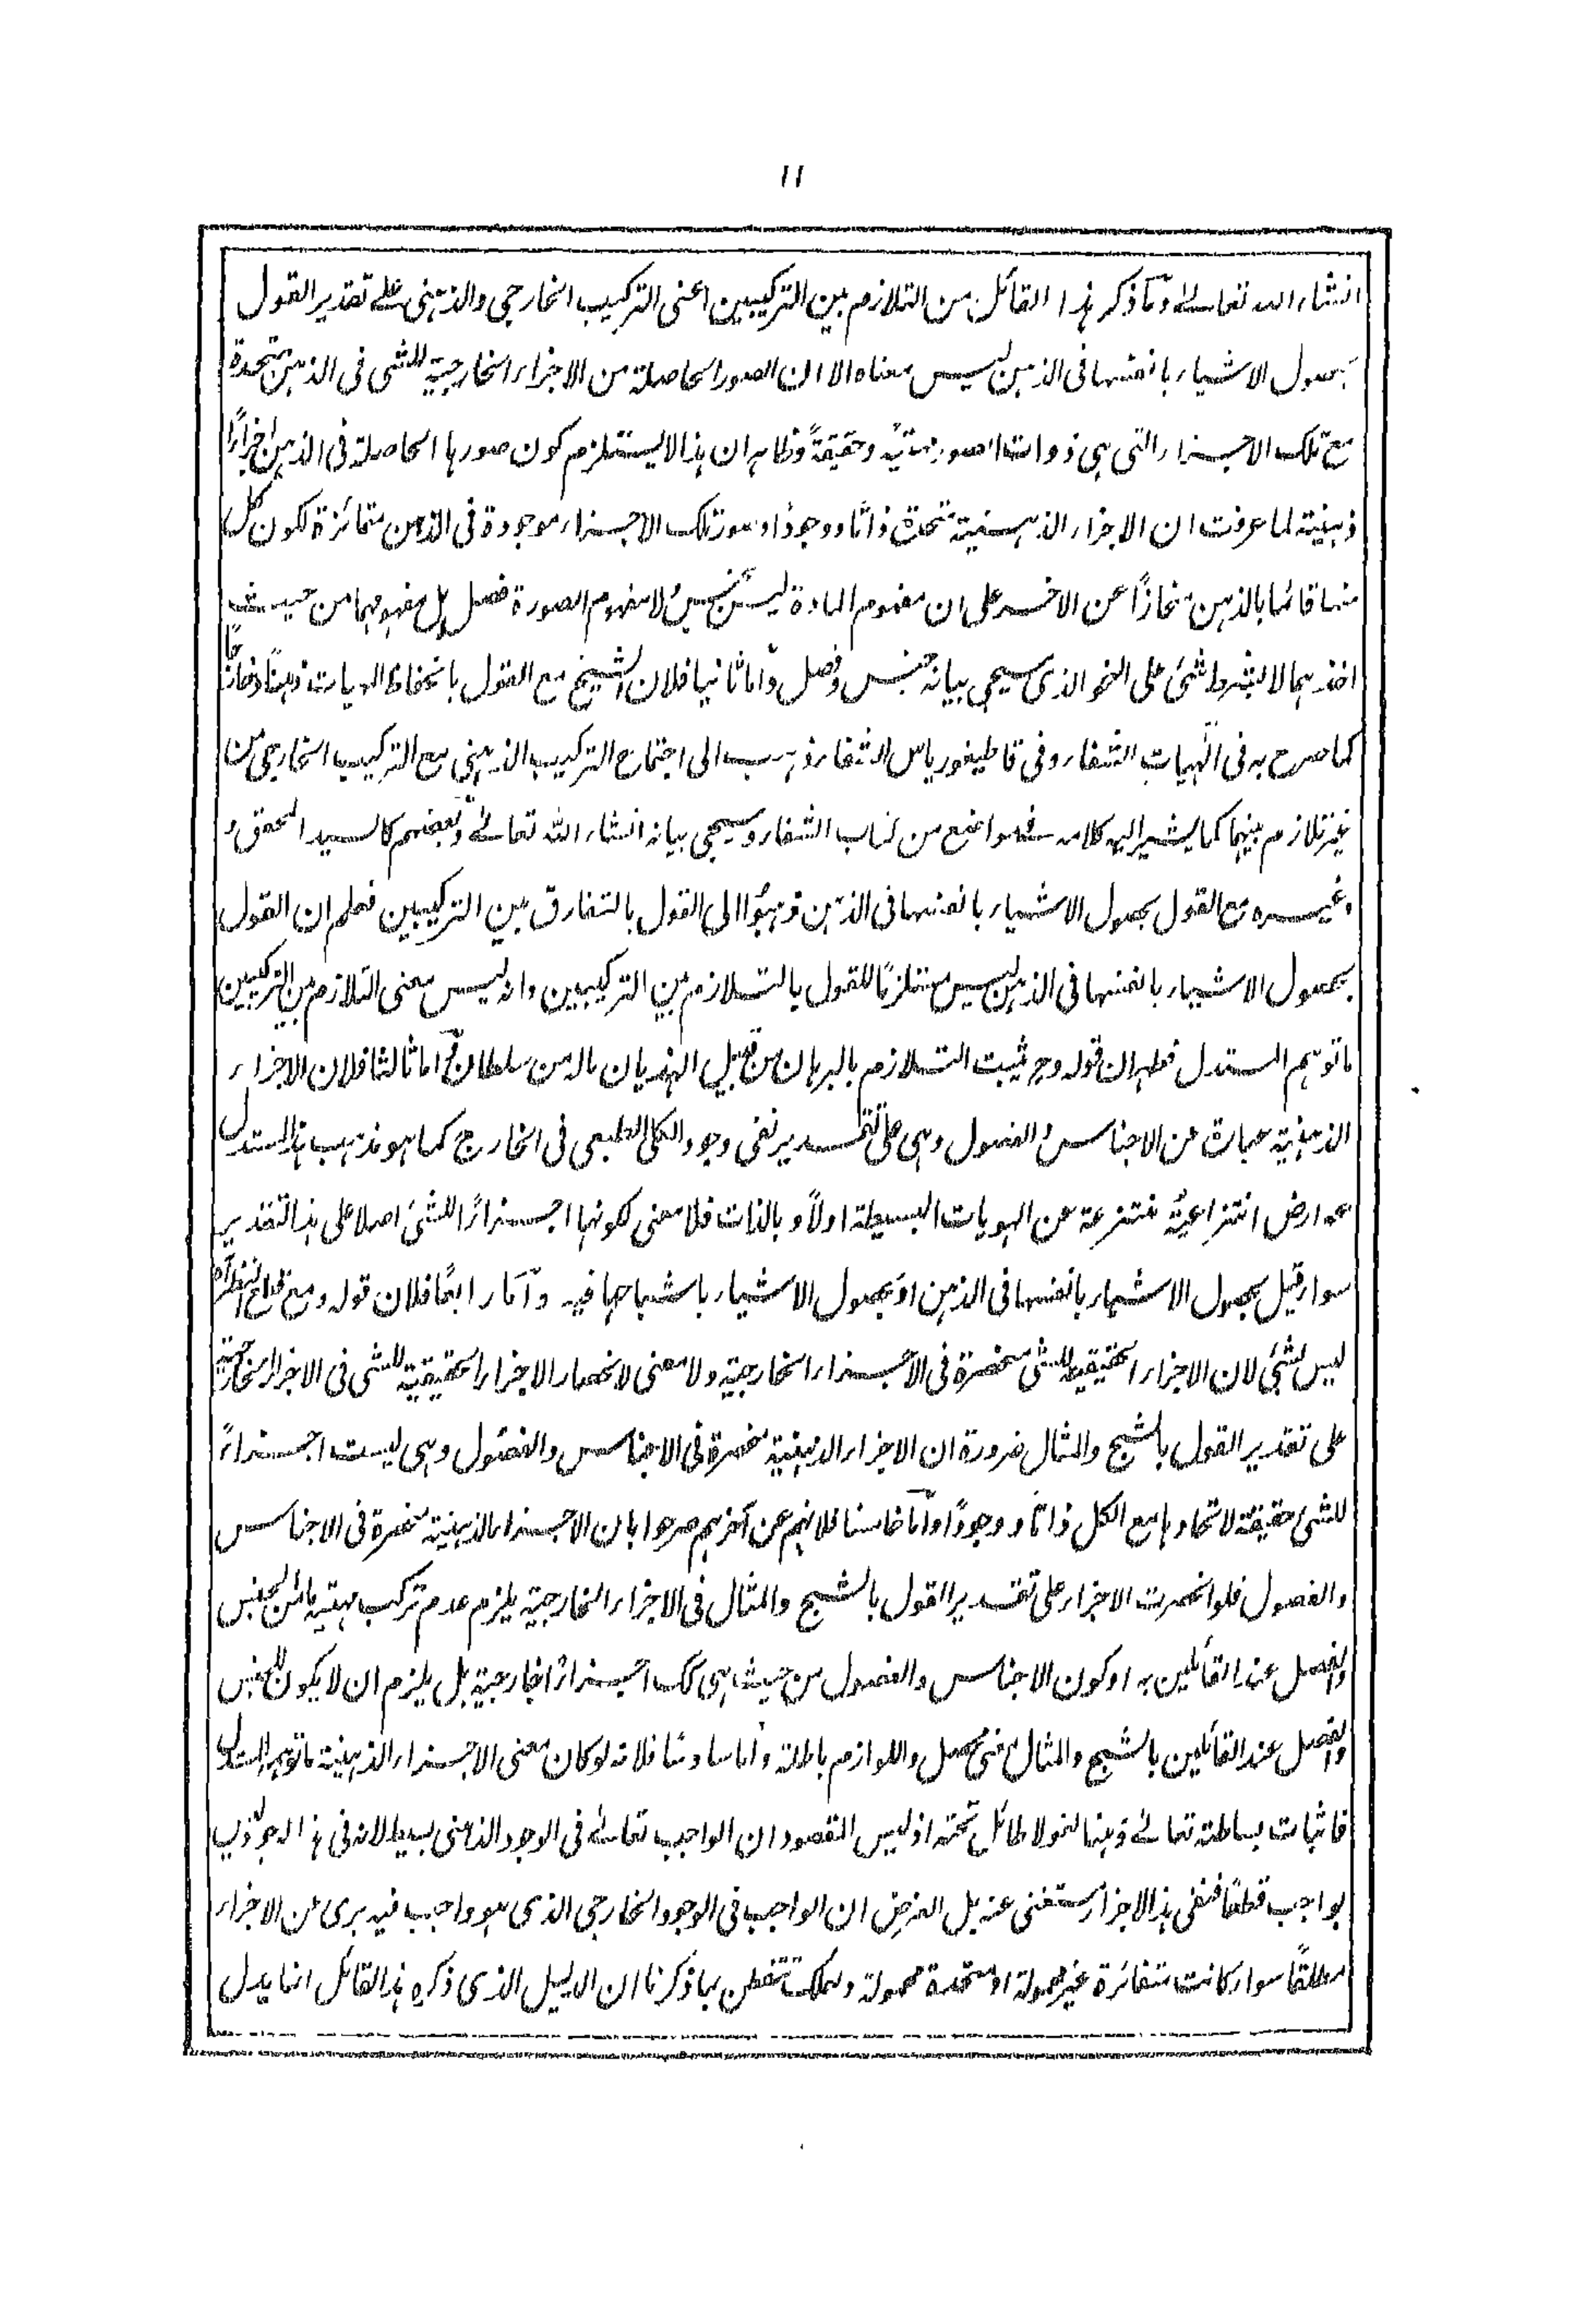 ١١
انشاء الله تعالى وما ذكر هذا القائل من التلازم بين التركيبين اعنى التركيب الخارجى والذهنى على تقدير القول
بحصول الاشياء بانفسها فى الذهن ليس معناه الا ان الصور الحاصلة من الاجزاء الخارجية للشئ فى الذهن متحدة
مع تلك الاجزاء التى هى ذوات الصور مهية وحقيقةً وظاهر ان هذا لا يستلزم كون صورها الحاصلة فى الذهن اجزاءً
ذهنية لما عرفت ان الاجزاء الذهنية متحدة ذاتا ووجودًا وصور تلك الاجزاء موجودة فى الذهن متمائزة لكون كل
منها قائما بالذهن منحازًا عن الاخر على ان مفهوم المادة ليس بجنس ولا مفهوم الصورة فصل بل مفهومهما من حيث
اخذهما لا بشرط شئ على النحو الذى سيجى بيانه جنس وفصل واما ثانيا فلان الشيخ مع القول بانحفاظ المهيات ذهنًا وخارجًا
كما صرح به فى الهيات الشفاء وفى قاطيغورياس الشفاء ذهب الى اجتماع التركيب الذهنى مع التركيب الخارجى من
غير تلازم بينهما كما يشير اليه كلامه فى مواضع من كتاب الشفاء وسيجى بيانه انشاء الله تعالى وبعضهم كالسيد المحقق
وغيره مع القول بحصول الاشياء بانفسها فى الذهن ذهبوا الى القول بالتفارق بين التركيبين فعلم ان القول
بحصول الاشياء بانفسها فى الذهن ليس مستلزمًا للقول بالتلازم بين التركيبين وانه ليس معنى التلازم بين التركيبين
ما توهم المستدل فظهر ان قوله وح يثبت التلازم بالبرهان من قبيل الهذيان ماله من سلطان واما ثالثا فلان الاجزاء
الذهنية عبارة عن الاجناس والفصول وهى على تقدير نفى وجود الكلى الطبعى فى الخارج كما هو مذهب هذا المستدل
عوارض انتزاعية منتزعة عن الهويات البسيطة اولًا وبالذات فلا معنى لكونها اجزاءً للشئ اصلا على هذا التقدير
سواء قيل بحصول الاشياء بانفسها فى الذهن او بحصول الاشياء باشباحها فيه واما رابعًا فلان قوله ومع قطع النظر آه
ليس بشئ لان الاجزاء الحقيقية للشئ منحصرة فى الاجزاء الخارجية ولا معنى لانحصار الاجزاء الحقيقية للشئ فى الاجزاء الخارجية
على تقدير القول بالشبح والمثال ضرورة ان الاجزاء الذهنية منحصرة فى الاجناس والفصول وهى ليست اجزاءً
للشئ حقيقة لاتحادها مع الكل ذاتا ووجودًا واما خامسا فلانهم عن آخرهم صرحوا بان الاجزاء الذهنية منحصرة فى الاجناس
والفصول فلو انحصرت الاجزاء على تقدير القول بالشبح والمثال فى الاجزاء الخارجية يلزم عدم تركب مهية ما من الجنس
والفصل عند القائلين به او كون الاجناس والفصول من حيث هى كك اجزاءً خارجية بل يلزم ان لا يكون للجنس
والفصل عند القائلين بالشبح والمثال معنى محصل واللوازم باطلة واما سادسًا فلانه لو كان معنى الاجزاء الذهنية ما توهم المستدل
فاثبات بساطته تعالى ذهنا لغو لا طائل تحته اذ ليس المقصود ان الواجب تعالى فى الوجود الذهنى بسيط لانه فى هذا الوجود ليس
بواجب قطعًا فنفى هذا الاجزاء مستغنى عنه بل الغرض ان الواجب فى الوجود الخارجى الذى هو واجب فيه برى عن الاجزاء
مطلقًا سواء كانت متغائرة غير محمولة او متحدة محمولة ولعلك تتفطن بما ذكرنا ان الدليل الذى ذكره هذا القائل انما يدل